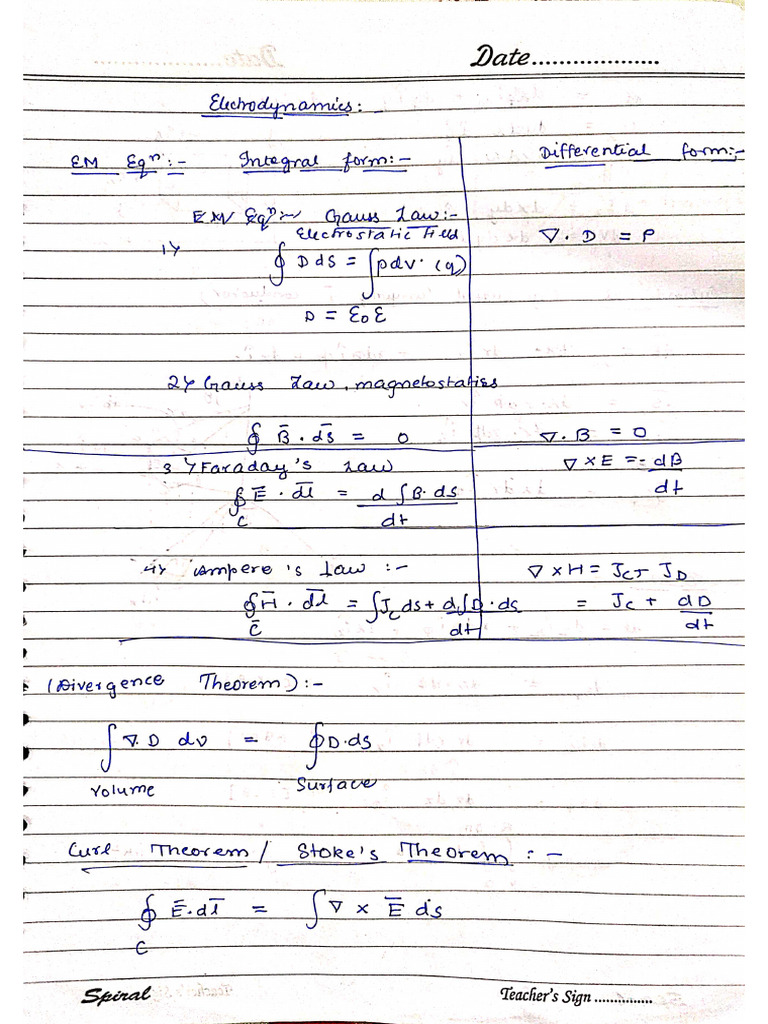 Date...................
Electrodynamics:
EM Eqⁿ:- Integral form:- Differential form:-
EM Eqⁿ:- Gauss Law:-
Electrostatic Field
1) ∮ D ds = ∫ρdv. (q) ∇. D = ρ
D = ε₀E
2) Gauss Law, magnetostatics
∮ B̄ . ds̄ = 0 ∇. B = 0
3) Faraday's Law ∇ × E = - dB/dt
∮_C Ē . dl̄ = d ∫B. ds / dt
4) Ampere's Law :- ∇ × H = J_C + J_D
∮_C H̄ . dl̄ = ∫J_C ds + d∫D . ds / dt = J_C + dD/dt
(Divergence Theorem) :-
∫ ∇. D dv = ∮ D. ds
Volume Surface
Curl Theorem / Stoke's Theorem : -
∮_C Ē. dl̄ = ∫ ∇ × Ē ds
Spiral Teacher's Sign ...............